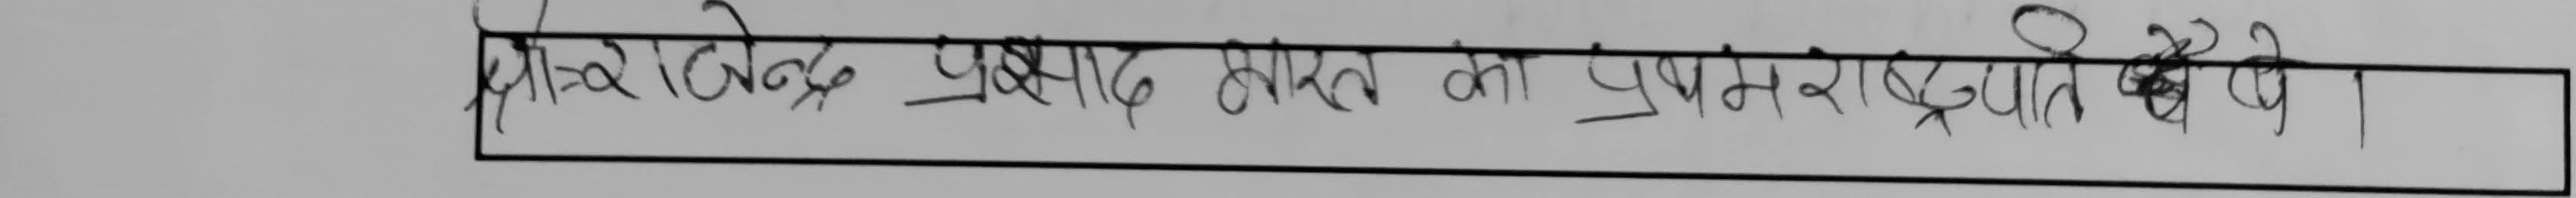 राजेन्द्र प्रसाद भारत का प्रथम राष्ट्रपति थे।